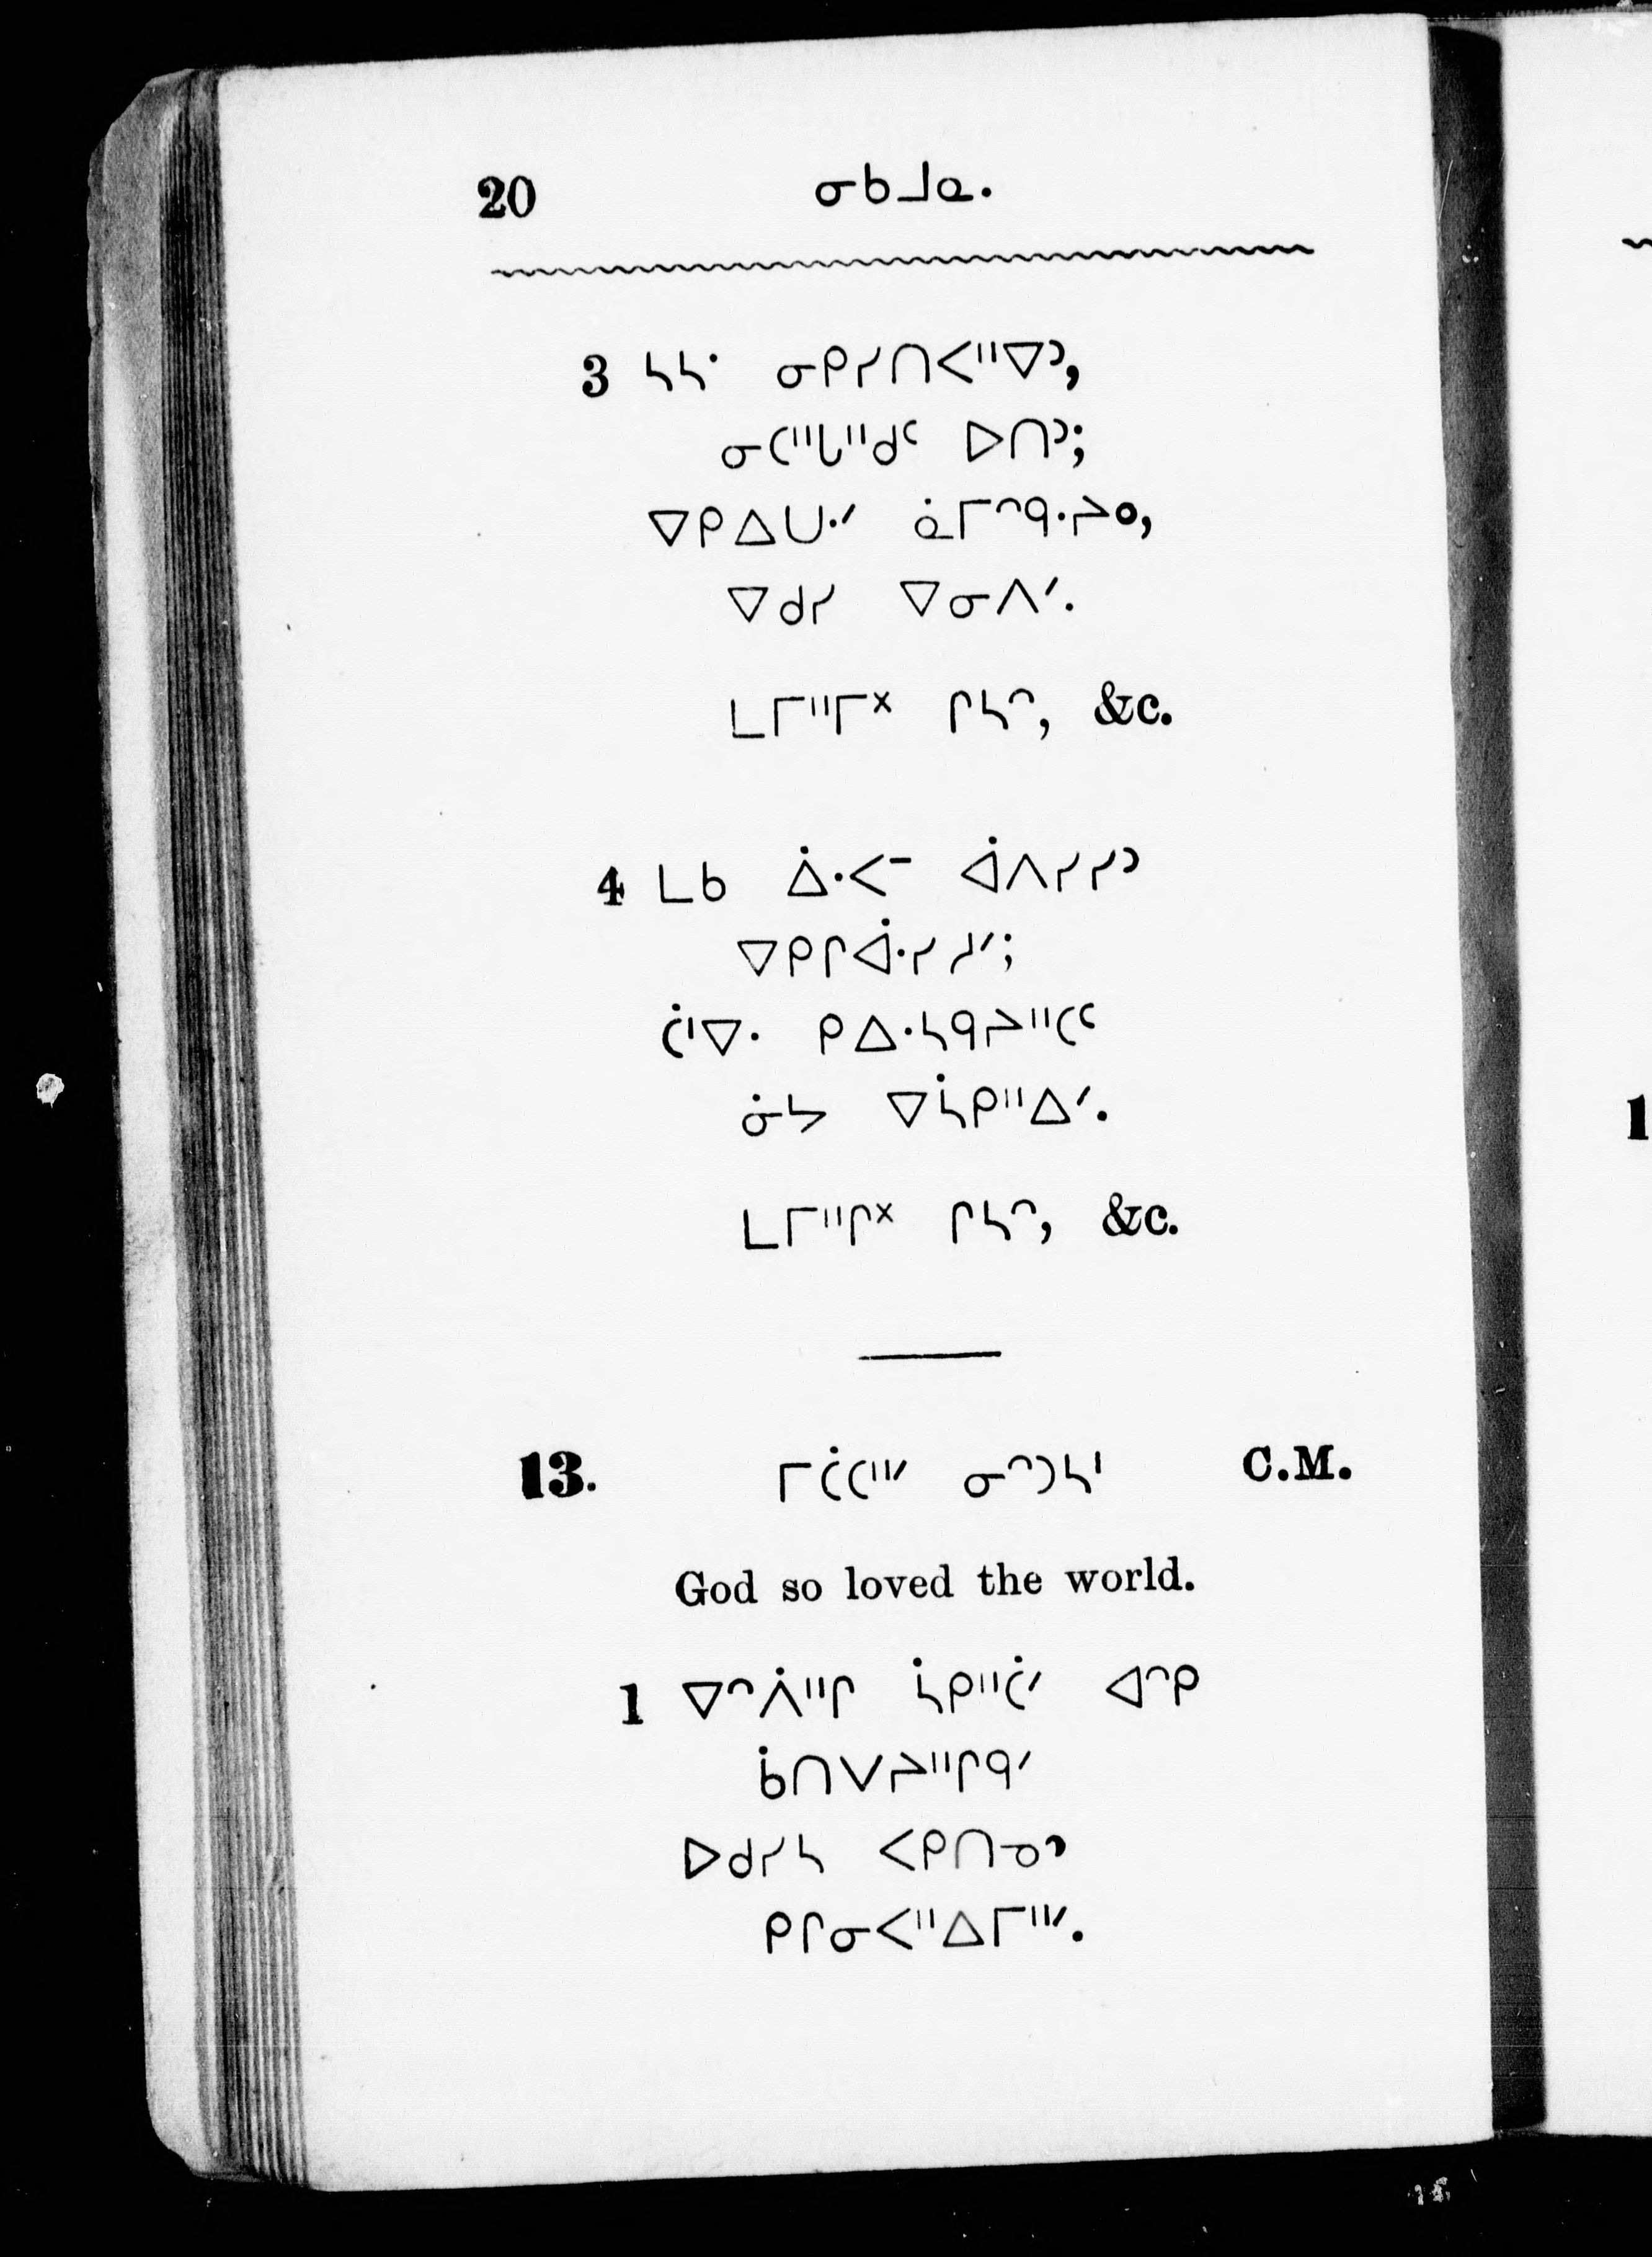 20 ᓂᑲᒧᓇ.
3 ᓴᓴ᛫ ᓂᑭᓯᑎᐸᐦᐁᐣ,
ᓂᑕᐦᒐᐦᑯᑦ ᐅᑎᐣ;
ᐁᑭᐃᑌᐧᐟ ᓈᒥᐢᑫᐧᔨᐤ,
ᐁᑯᓯ ᐁᓂᐱᐟ.
ᒪᒥᐦᒥᕽ ᒋᓴᐢ, &c.
4 ᒪᑲ ᐄᐧᐸᐨ ᐋᐱᓯᓯᐣ
ᐁᑭᒋᐋᐧᓯᓱᐟ;
ᑖᑊᐁᐧ ᑭᐃᐧᓴᑫᔨᐦᑕᑦ
ᓃᔭ ᐁᓵᑭᐦᐃᐟ.
ᒪᒥᐦᒋᕽ ᒋᓴᐢ, &c.
13. ᒥᑖᑕᐦᐟ ᓂᐢᑐᓴᑊ C.M.
God so loved the world.
1 ᐁᐢᐲᐦᒋ ᓵᑭᐦᑖᐟ ᐊᐢᑭ
ᑳᑎᐯᔨᐦᒋᑫᐟ
ᐅᑯᓯᓴ ᐸᑭᑎᓀᐣ
ᑭᒋᓂᐸᐦᐃᒥᐦᐟ.